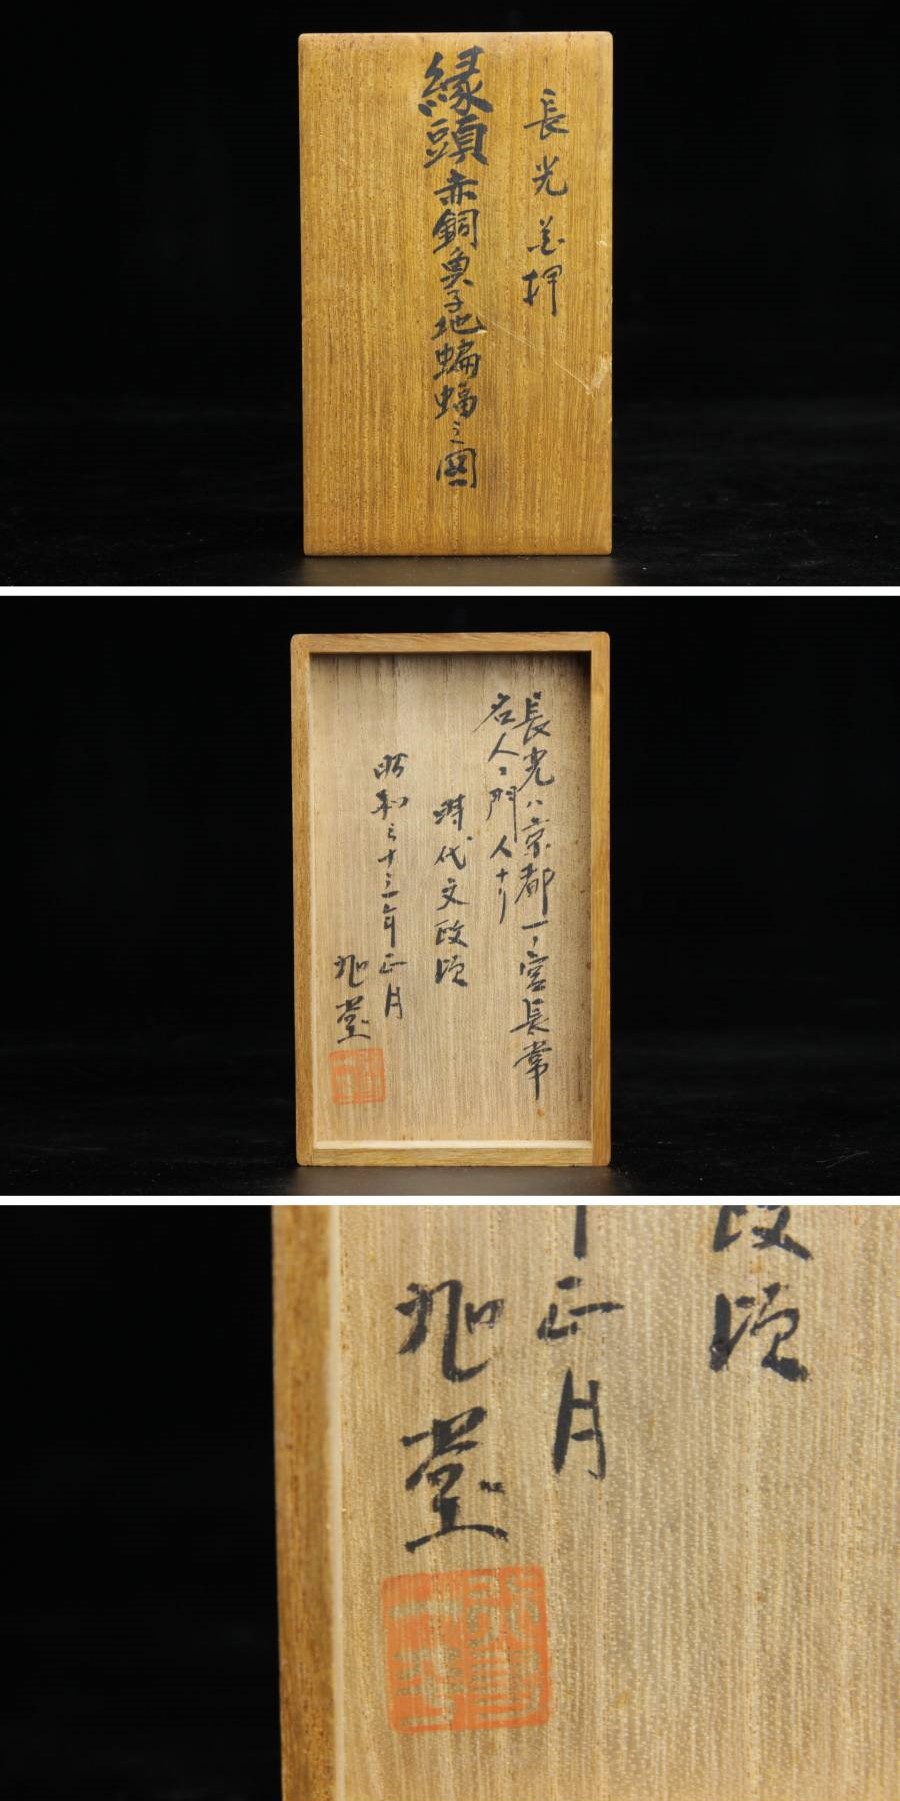 長光花押
縁頭 赤銅魚子地蝙蝠之図
長光ハ京都一ノ宮長常
名人ニ門人ナリ
時代文政頃
昭和三十三年正月
旭堂
政頃
正月
旭堂